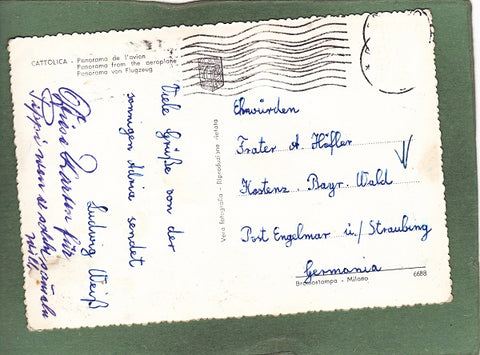 CATTOLICA - Panorama de l'avion
Panorama from the aeroplane
Panorama von Flugzeug
Viele Grüße von der
sonnigen Adria sendet
Ludwig Weiß
Karten für
Pippi wenn
will
Vera fotografia - Riproduzione vietata
Ehrwürden
Frater A. Höfler
Kostenz. Bayr. Wald
Post Engelmar ü./ Straubing
Germania
Bromostampa - Milano
6688